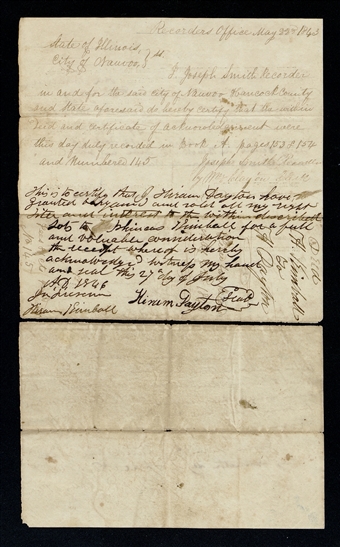 Recorders Office May 22d 1843
State of Illinois,
City of Nauvoo, } ss.
I Joseph Smith Recorder
in and for the said City of Nauvoo Hancock County
and State aforesaid do hereby certify that the within
Deed and certificate of acknowledgement were
this day duly recorded in Book A. pages 153 & 154
and Numbered 145.
Joseph Smith Recorder
by Wm Clayton Clk
This is to certify that I Hiram Dayton have
granted and sold all my right
title and interest to the within described
lot to Phineas Kimball for a full
and valuable consideration
the receipt whereof is hereby
acknowledged witness my hand
and seal this 27 day of July
AD. 1846
Hirum Dayton Seal
Hiram Kimball
Deed
H. Kimball
to
H Dayton